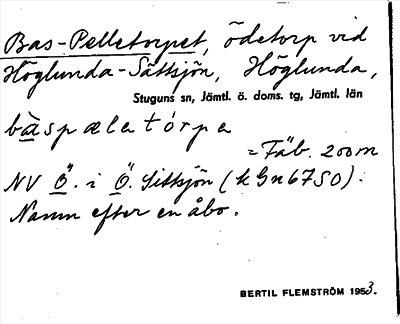 Bas-Pelletorpet, ödetorp vid
Höglunda-Sättsjön, Höglunda,
Stuguns sn, Jämtl. ö. doms. tg, Jämtl. län
bàspæletórpe
= Fäb. 200m
NV Ö. i Ö. Sittsjön (kGn67SO).
Namn efter en åbo.
BERTIL FLEMSTRÖM 1953.